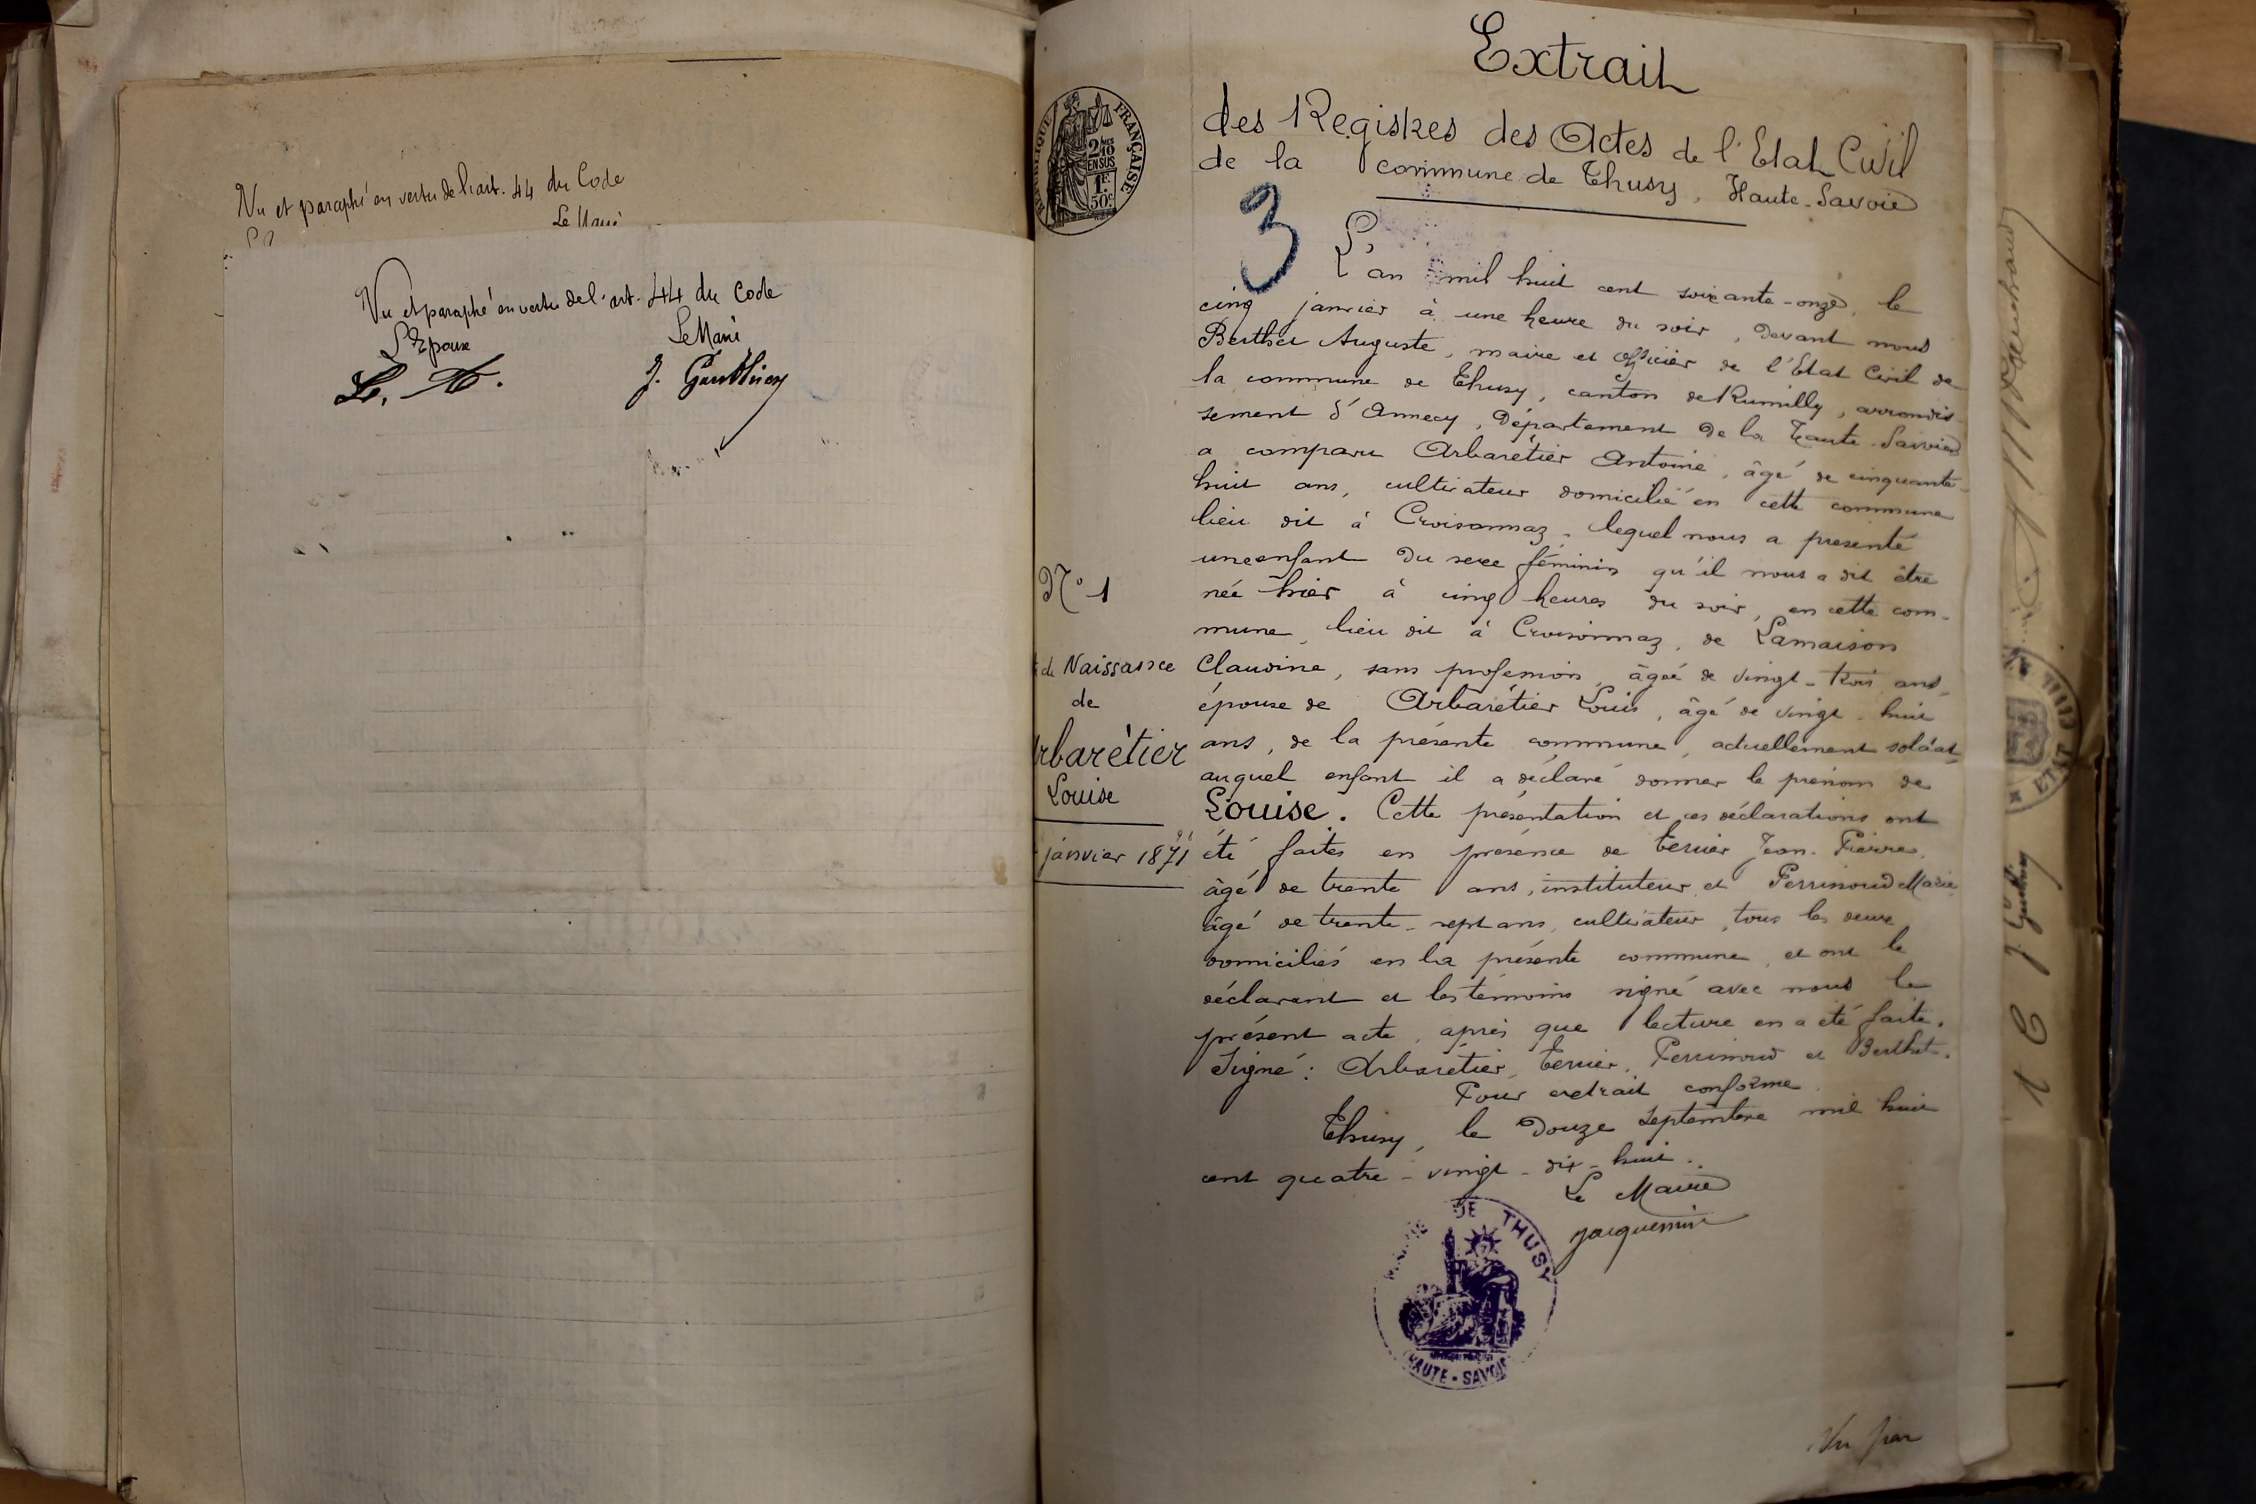 Vu et paraphé en vertu de l'art. 44 du Code
Le Mari
Vu et paraphé en vertu de l'art. 44 du Code
L'Epouse Le Mari
L. A. J. Gauthier
Extrait
des Registres des Actes de l'Etat Civil
de la commune de Thusy, Haute-Savoie
RÉPUBLIQUE FRANÇAISE
2/10
EN SUS
1F.
50c.
3
L'an mil huit cent soixante-onze, le
cinq janvier à une heure du soir, devant nous
Berthet Auguste, maire et officier de l'Etat Civil de
la commune de Thusy, canton de Rumilly, arrondis-
sement d'Annecy, Département de la Haute-Savoie
a comparu Arbarétier Antoine, âgé de cinquante-
huit ans, cultivateur domicilié en cette commune
lieu dit à Croisonnaz, lequel nous a présenté
une enfant du sexe féminin qu'il nous a dit être
née hier à cinq heures du soir, en cette com-
mune, lieu dit à Croisonnaz, de Lamaison
Claudine, sans profession, âgée de vingt-trois ans,
épouse de Arbarétier Louis, âgé de vingt-huit
ans, de la présente commune, actuellement soldat
auquel enfant il a déclaré donner le prénom de
Louise. Cette présentation et ces déclarations ont
été faites en présence de Terrier Jean-Pierre,
âgé de trente ans, instituteur et Perrinoud Marie
âgé de trente-sept ans, cultivateur, tous les deux
domiciliés en la présente commune, et ont le
déclarant et les témoins signé avec nous le
présent acte, après que lecture en a été faite.
Signé: Arbarétier, Terrier, Perrinoud et Berthet.
Pour extrait conforme
Thusy, le Douze septembre mil huit
cent quatre-vingt-dix-huit.
Le Maire
Jacquemin
N° 1
de Naissance
de
rbarétier
Louise
janvier 1871
DE THUSY
HAUTE-SAVOIE
Vu par
J. Gauthier
ETAT